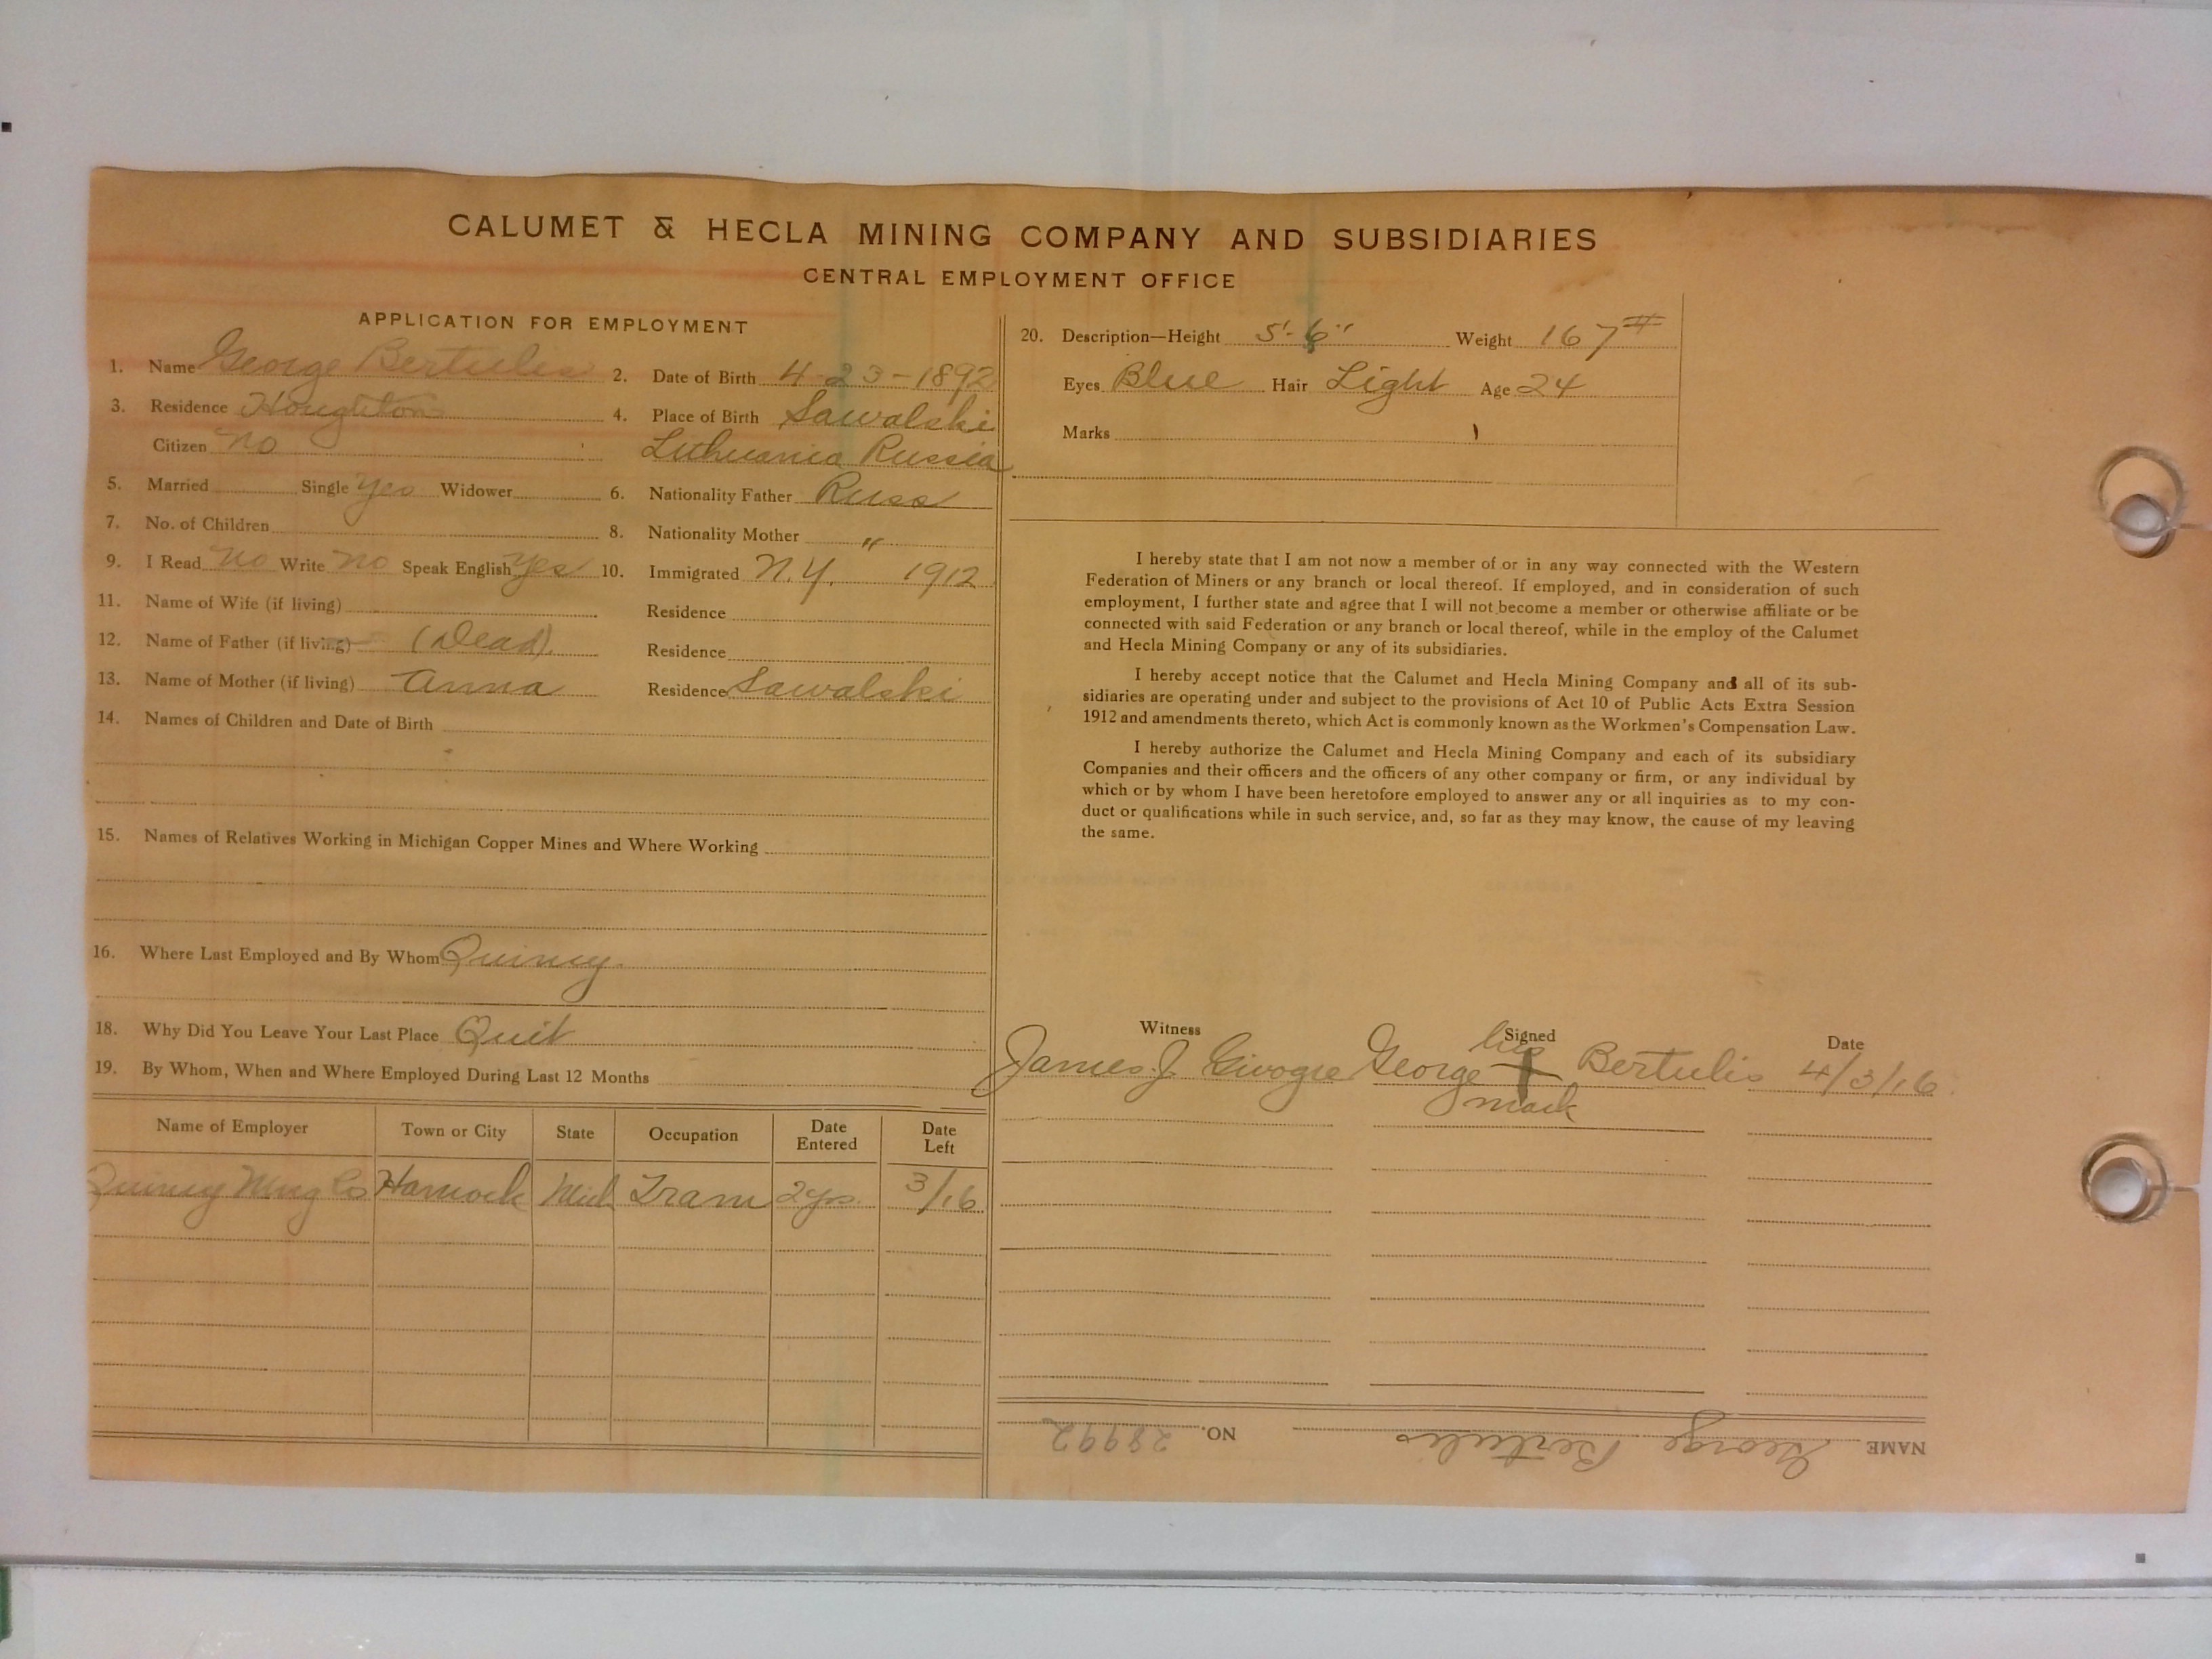 CALUMET & HECLA MINING COMPANY AND SUBSIDIARIES
CENTRAL EMPLOYMENT OFFICE
APPLICATION FOR EMPLOYMENT
1. Name George Bertulis 2. Date of Birth 4-23-1892
3. Residence Houghton 4. Place of Birth Sawalski
Citizen no Lithuania Russia
5. Married Single yes Widower 6. Nationality Father Russ
7. No. of Children 8. Nationality Mother "
9. I Read no Write no Speak English yes 10. Immigrated N.Y. 1912
11. Name of Wife (if living) Residence
12. Name of Father (if living) (Dead) Residence
13. Name of Mother (if living) Anna Residence Sawalski
14. Names of Children and Date of Birth
15. Names of Relatives Working in Michigan Copper Mines and Where Working
16. Where Last Employed and By Whom Quincy
18. Why Did You Leave Your Last Place Quit
19. By Whom, When and Where Employed During Last 12 Months
Name of Employer Town or City State Occupation Date Entered Date Left
Quincy Mng Co Hancock Mich Tram 2 yrs. 3/16
20. Description—Height 5'-6" Weight 167#
Eyes Blue Hair Light Age 24
Marks
I hereby state that I am not now a member of or in any way connected with the Western
Federation of Miners or any branch or local thereof. If employed, and in consideration of such
employment, I further state and agree that I will not become a member or otherwise affiliate or be
connected with said Federation or any branch or local thereof, while in the employ of the Calumet
and Hecla Mining Company or any of its subsidiaries.
I hereby accept notice that the Calumet and Hecla Mining Company and all of its sub-
sidiaries are operating under and subject to the provisions of Act 10 of Public Acts Extra Session
1912 and amendments thereto, which Act is commonly known as the Workmen's Compensation Law.
I hereby authorize the Calumet and Hecla Mining Company and each of its subsidiary
Companies and their officers and the officers of any other company or firm, or any individual by
which or by whom I have been heretofore employed to answer any or all inquiries as to my con-
duct or qualifications while in such service, and, so far as they may know, the cause of my leaving
the same.
Witness Signed Date
James J. George his Bertulis 4/3/16
mark
NAME George Bertulis NO. 28992